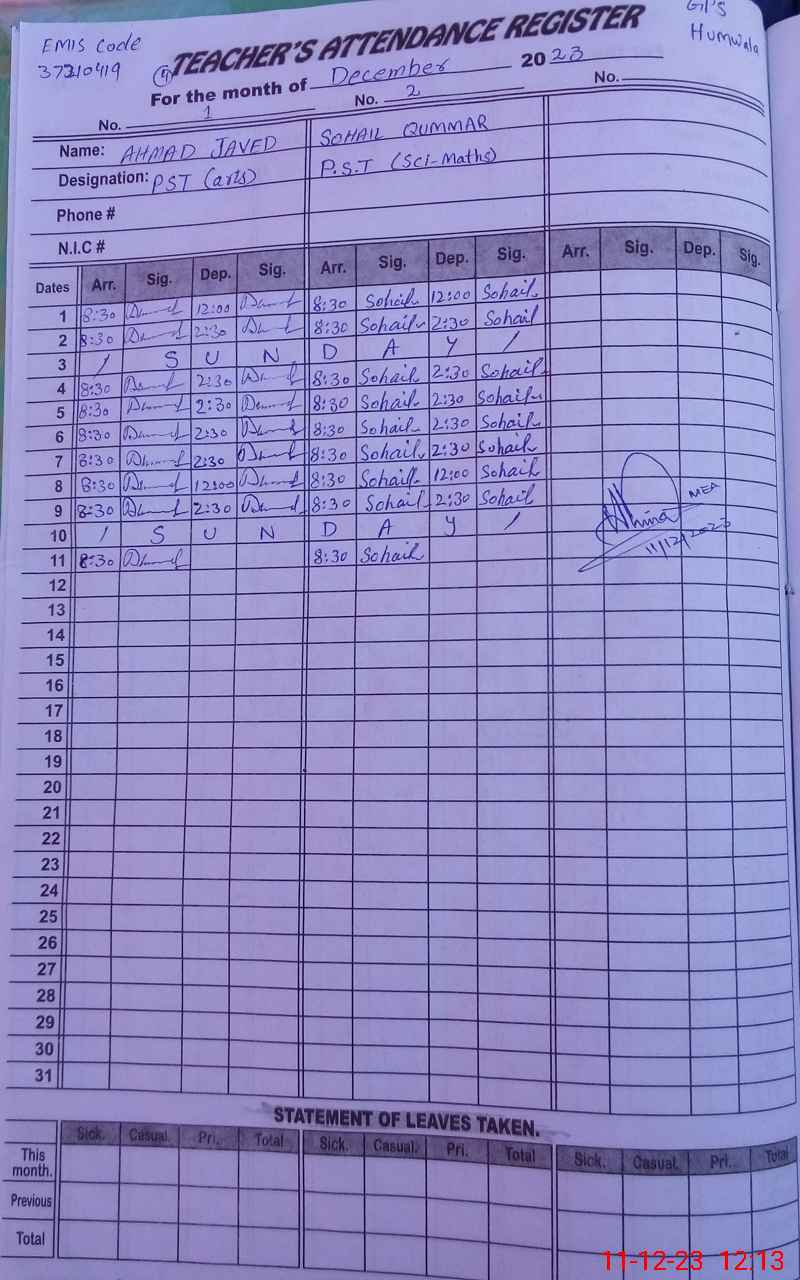 EMIS Code
37210419
GPS
Humwala
(4) TEACHER'S ATTENDANCE REGISTER
For the month of December 2023
No. 1 No. 2 No.
Name: AHMAD JAVED SOHAIL QUMMAR
Designation: PST (arts) P.S.T (Sci-Maths)
Phone #
N.I.C #
Dates Arr. Sig. Dep. Sig. Arr. Sig. Dep. Sig. Arr. Sig. Dep. Sig.
1 8:30 12:00 8:30 Sohail 12:00 Sohail
2 8:30 2:30 8:30 Sohail 2:30 Sohail
3 / S U N D A Y /
4 8:30 2:30 8:30 Sohail 2:30 Sohail
5 8:30 2:30 8:30 Sohail 2:30 Sohail
6 8:30 2:30 8:30 Sohail 2:30 Sohail
7 8:30 2:30 8:30 Sohail 2:30 Sohail
8 8:30 12:00 8:30 Sohail 12:00 Sohail
9 8:30 2:30 8:30 Sohail 2:30 Sohail
10 / S U N D A Y /
11 8:30 8:30 Sohail
MEA
11/12/2023
12
13
14
15
16
17
18
19
20
21
22
23
24
25
26
27
28
29
30
31
STATEMENT OF LEAVES TAKEN.
Sick. Casual. Pri. Total Sick. Casual. Pri. Total Sick. Casual. Pri. Total
This month.
Previous
Total
11-12-23 12:13